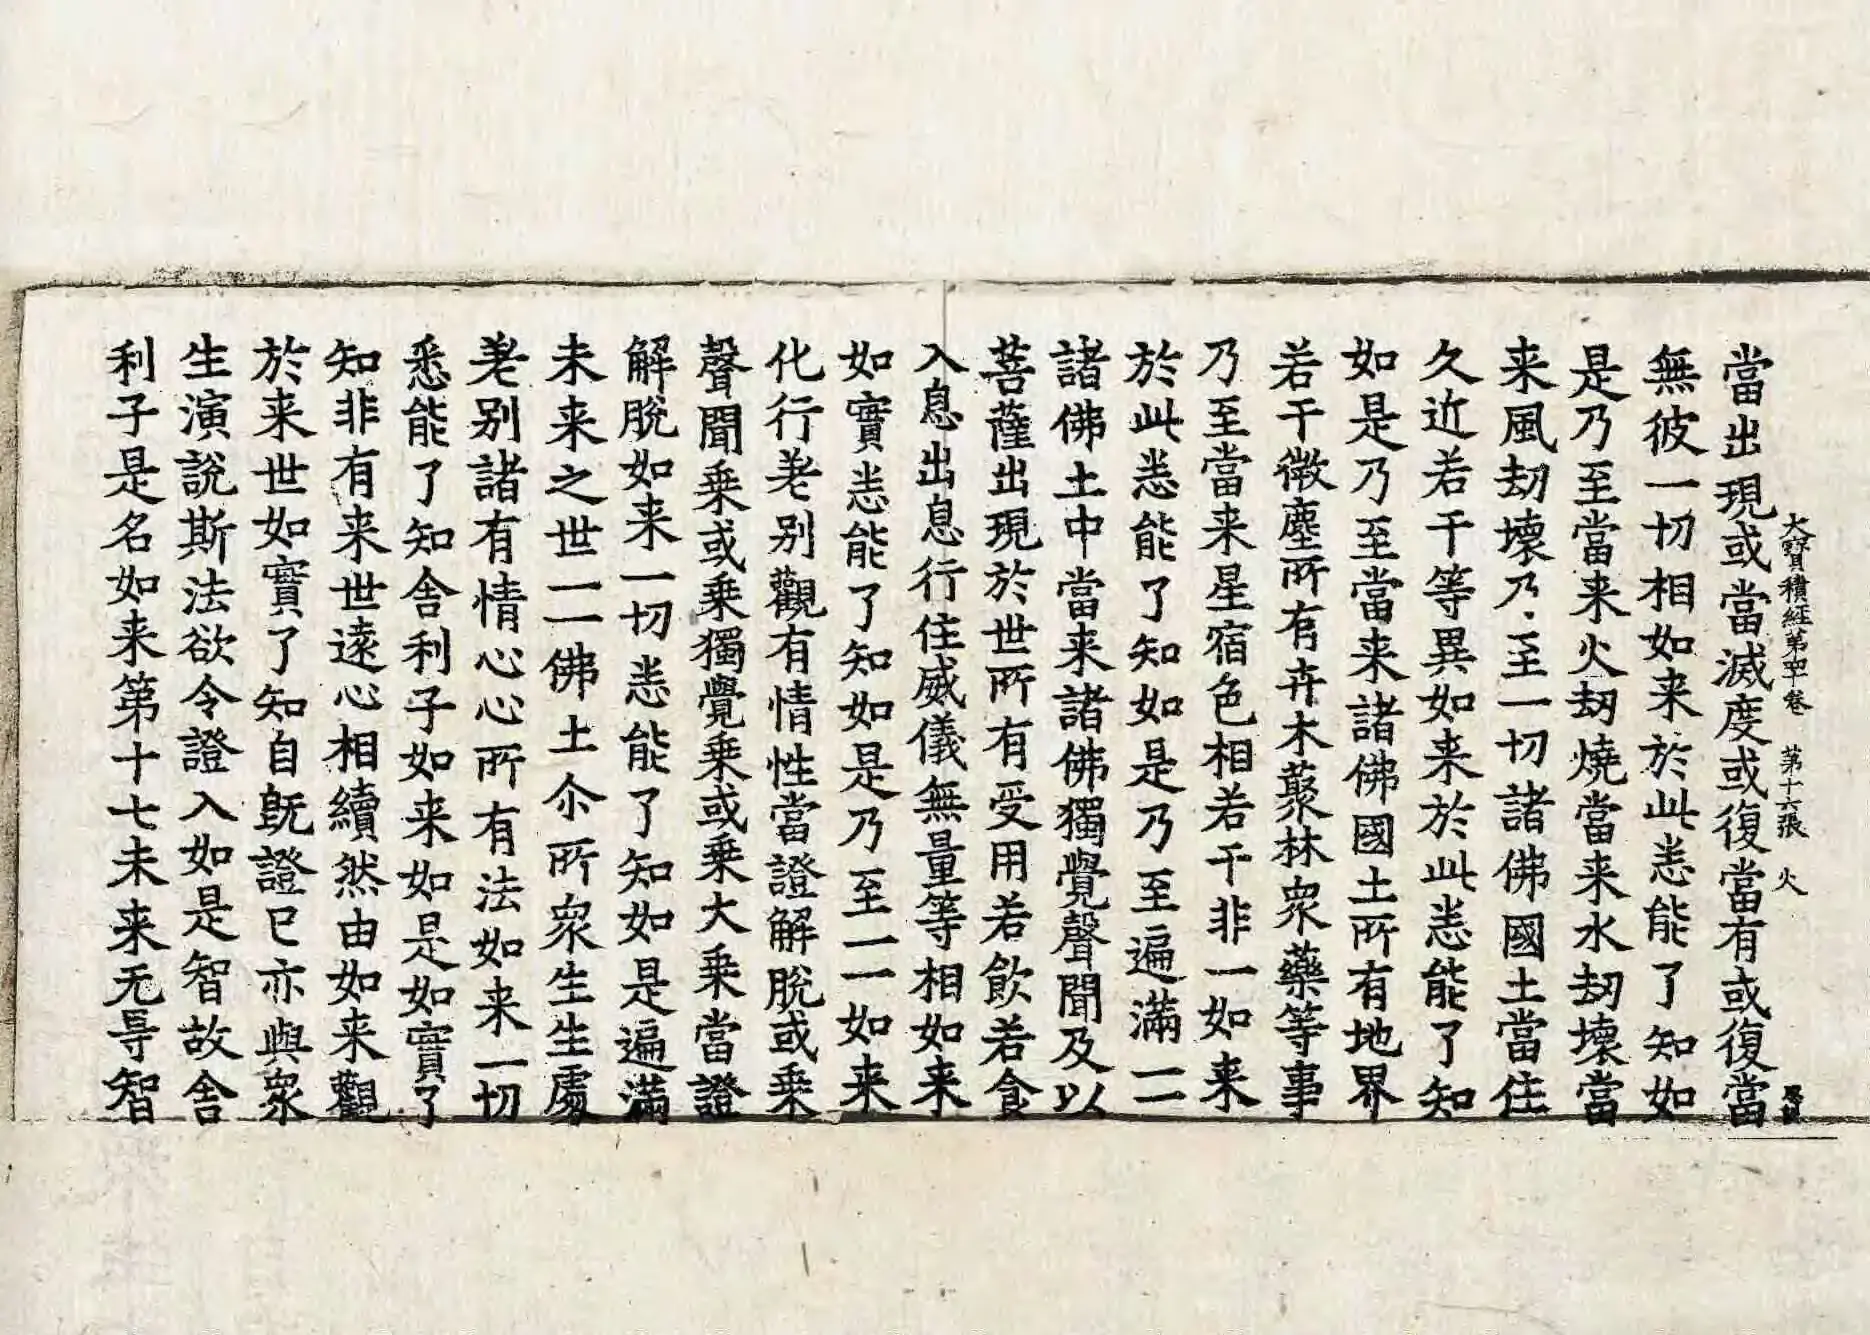 大寶積經第四十卷　第十六張　火
當出現或當滅度或復當有或復當
無彼一切相如来於此悉能了知如
是乃至當来火劫燒當来水劫壞當
来風劫壞乃至一切諸佛國土當住
久近若干等異如来於此悉能了知
如是乃至當来諸佛國土所有地界
若干微塵所有卉木藂林衆藥等事
乃至當来星宿色相若干非一如来
於此悉能了知如是乃至遍滿一一
諸佛土中當来諸佛獨覺聲聞及以
菩薩出現於世所有受用若飲若食
入息出息行住威儀無量等相如来
如實悉能了知如是乃至一一如来
化行差别觀有情性當證解脫或乗
聲聞乗或乗獨覺乗或乗大乗當證
解脫如来一切悉能了知如是遍滿
未来之世一一佛土尒所衆生生處
差别諸有情心心所有法如来一切
悉能了知舍利子如来如是如實了
知非有来世逺心相續然由如来觀
於来世如實了知自旣證已亦與衆
生演說斯法欲令證入如是智故舍
利子是名如来第十七未来无㝵智